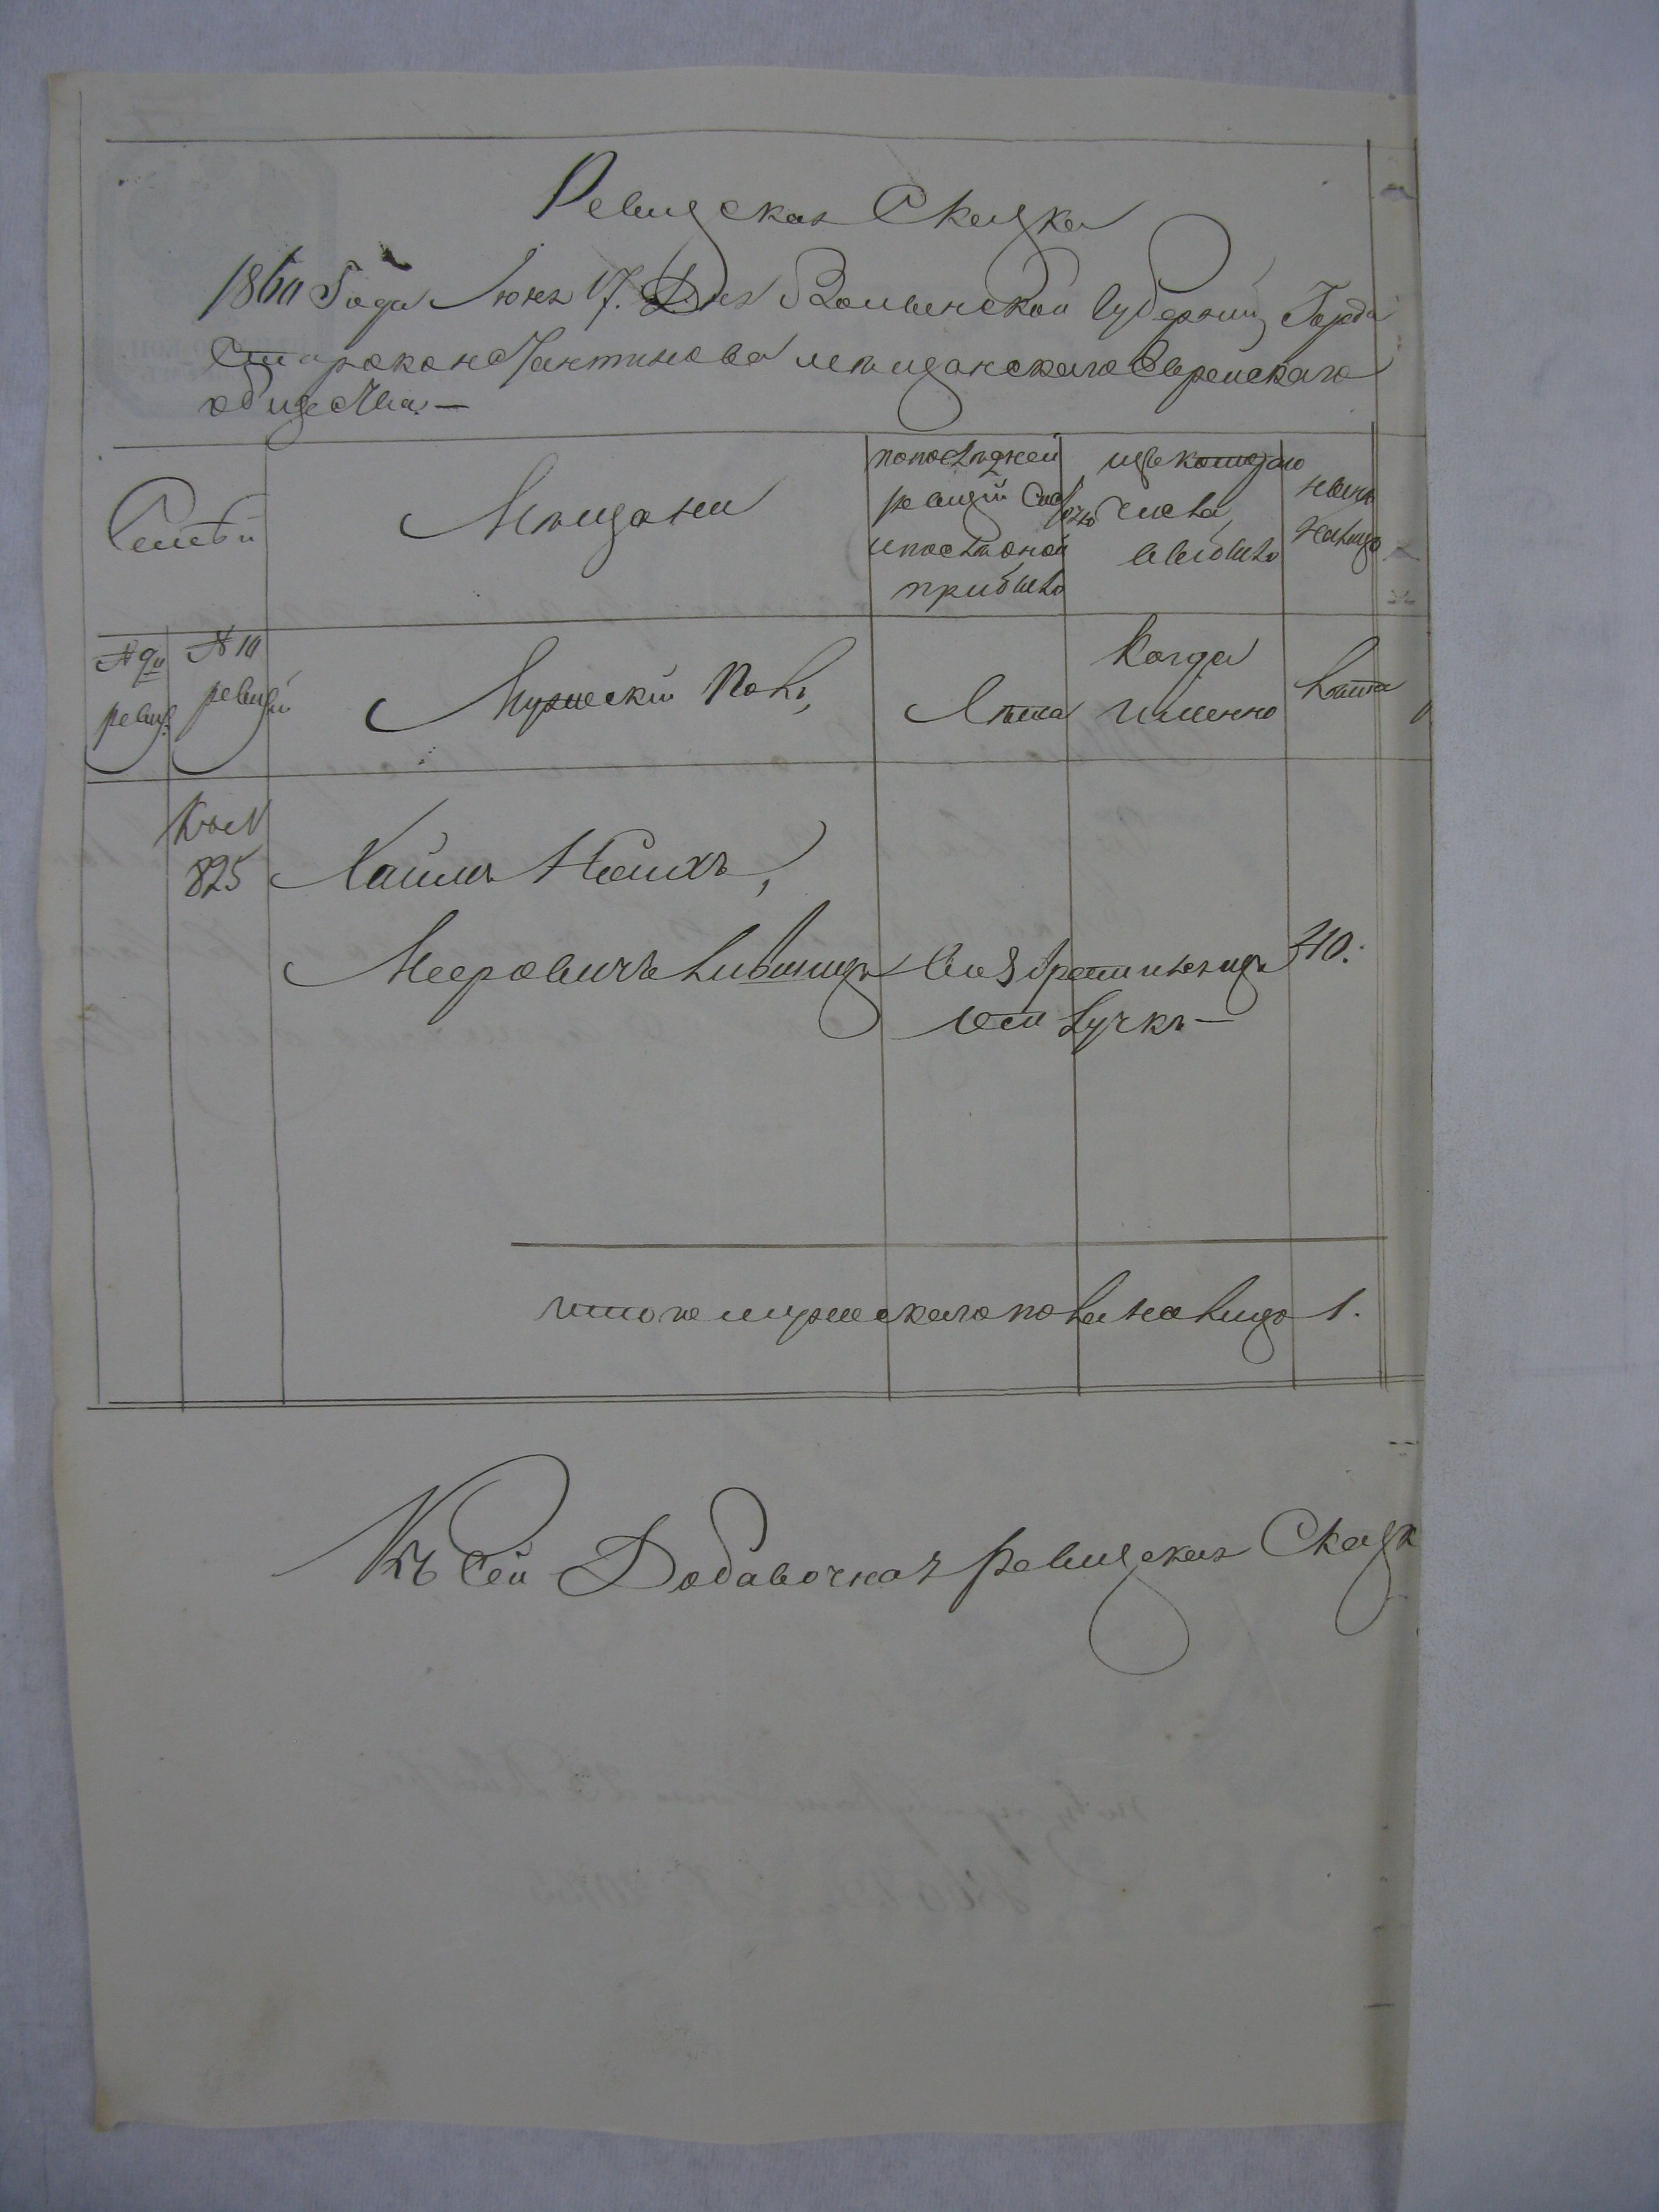 Ревизская Сказка
1860 Года Июня 17. Дня Волынской Губерніи Города
Староконстантинова мѣщанскаго Еврейскаго
общества.—
Семьи
Мѣщани
попослѣдней
ревизіи Сос
тояло
ипослѣоной
прибыло
изъ
числа
выбыло
нынѣ
налицо
№ 9й
ревиз.
№ 10
ревизіи
Мужескій Полъ,
Лѣта
Когда
именно
лѣта
Къ №
825
Хаимъ
Мееровичъ Лившицъ
40.
Луцкъ—
итого мужескаго пола налицо 1.
Къ сей Добавочная ревизская Сказк